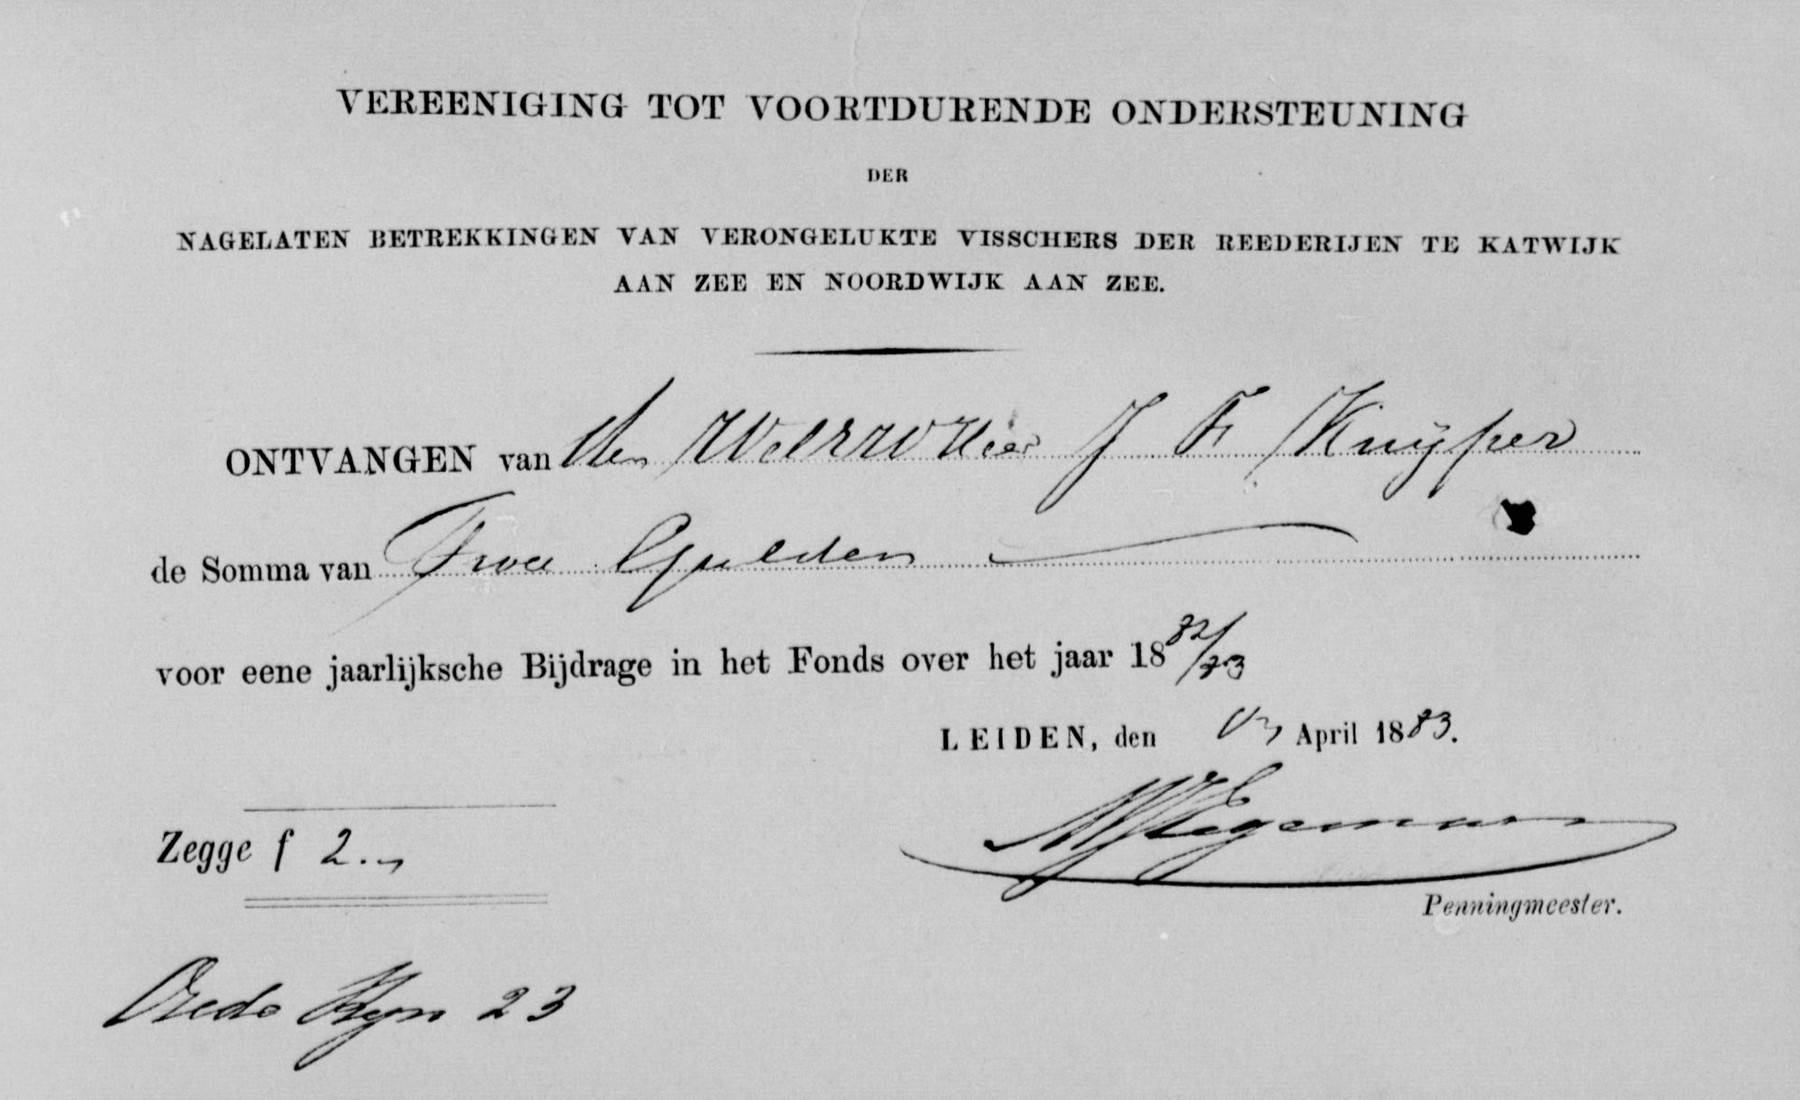 VEREENIGING TOT VOORTDURENDE ONDERSTEUNING
DER
NAGELATEN BETREKKINGEN VAN VERONGELUKTE VISSCHERS DER REEDERIJEN TE KATWIJK
AAN ZEE EN NOORDWIJK AAN ZEE.
ONTVANGEN van den Heer J F Kuijper
de Somma van Twee Gulden
voor eene jaarlijksche Bijdrage in het Fonds over het jaar 1882/83
LEIDEN, den April 1883.
Zegge f 2.-
Penningmeester.
Oude Ryn 23